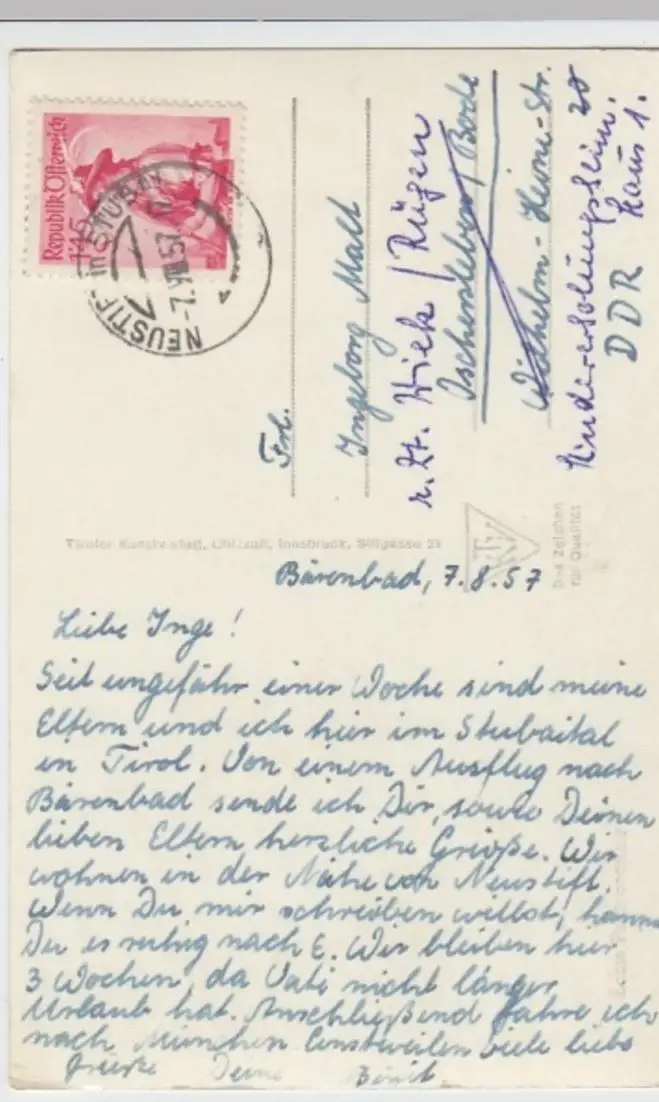 Republik Österreich
1.45
NEUSTIFT in STUBAI
-7.VIII.57
Frl.
Ingeborg Malt
z. Zt. Wiek / Rügen
Oschersleben / Bode
Wilhelm-Heine-Str. 20
Kindererholungsheim.
Haus 1.
DDR
Tiroler Kunstverlag, Chizzali, Innsbruck, Sillgasse 21
Das Zeichen
für Qualität
Bärenbad, 7.8.57
Liebe Inge!
Seit ungefähr einer Woche sind meine
Eltern und ich hier im Stubaital
in Tirol. Von einem Ausflug nach
Bärenbad sende ich Dir, sowie Deinen
lieben Eltern herzliche Grüße. Wir
wohnen in der Nähe von Neustift.
Wenn Du mir schreiben willst, kannst
Du es ruhig nach E. Wir bleiben hier
3 Wochen, da Vati nicht länger
Urlaub hat. Anschließend fahre ich
nach München Einstweilen viele liebe
Grüße Deine